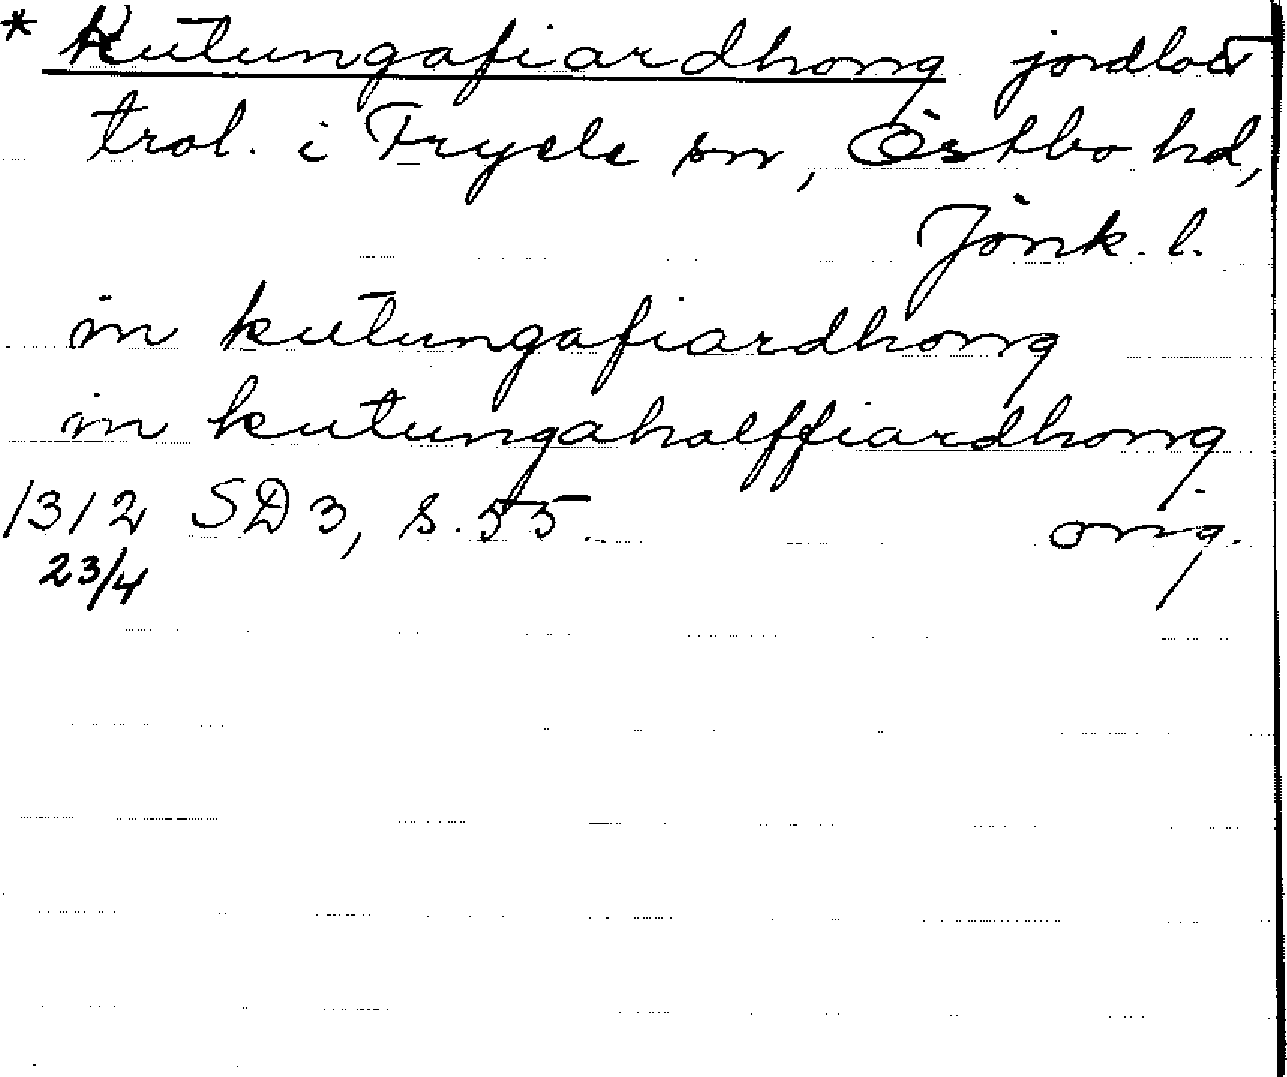 * Kutungafiardhong jordlott
trol. i Fryele sn, Östbo hd,
Jönk. l.
in kutungafiardhong
in kutungahalffiardhong
1312 SD 3, s. 55. orig.
23/4